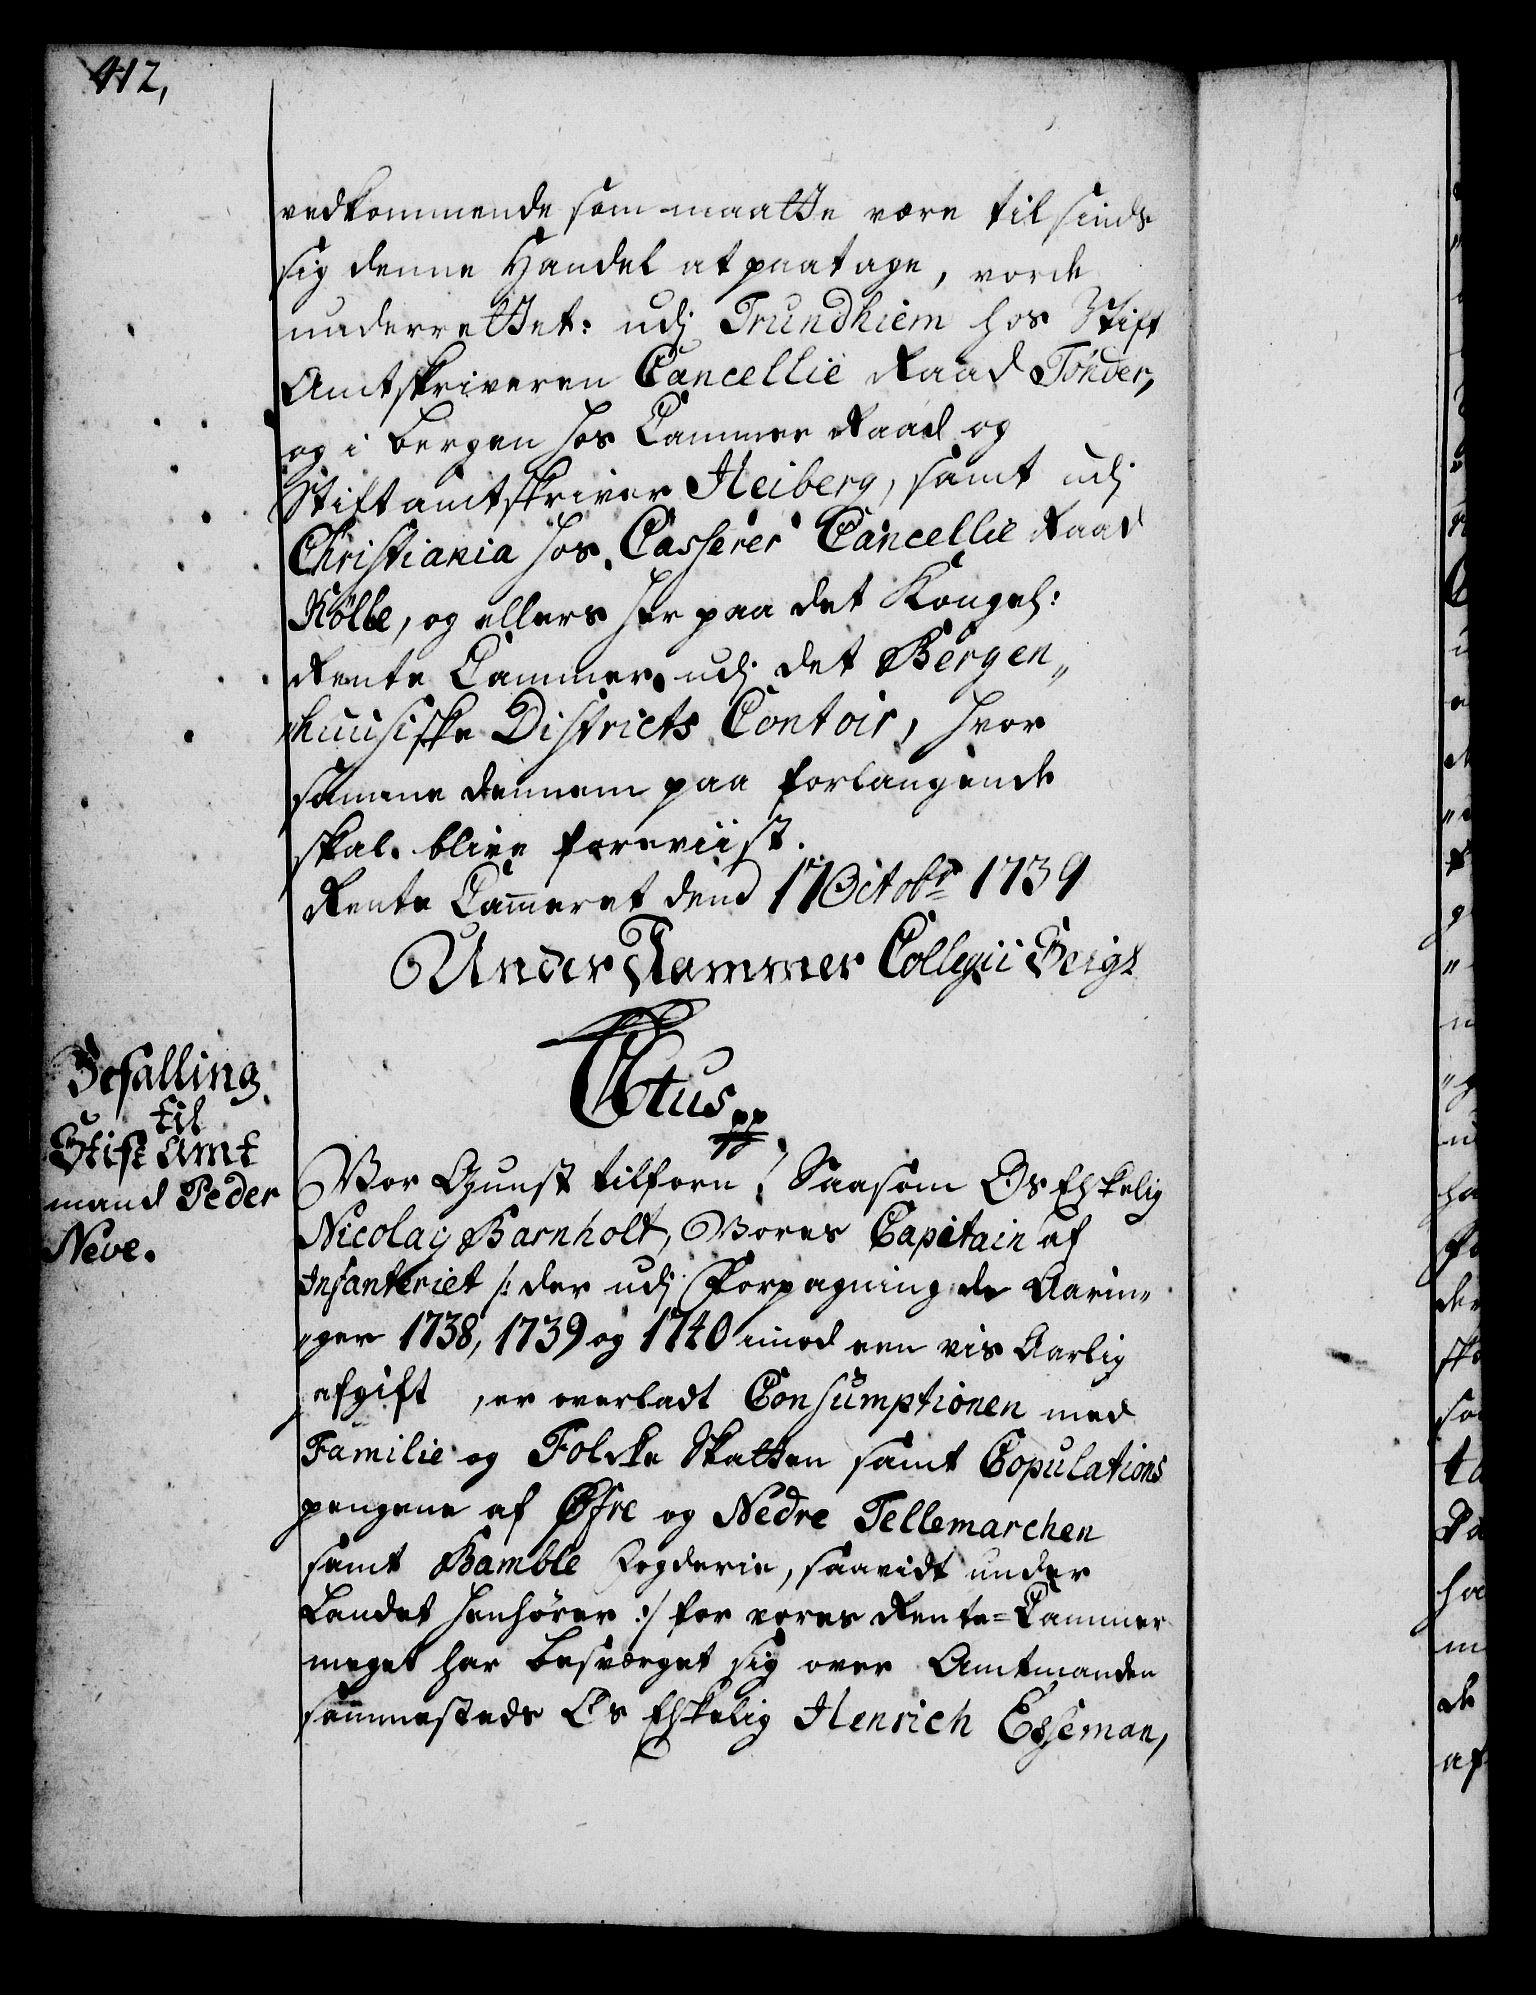 412,
vedkommende som maatte være tilsinds
sig denne Handel at paatage, vorde
underrettet: udj Trundhiem hos Stift
Amtskriveren Cancellie Raad Tønder,
og i Bergen hos Cammer Raad og
Stiftamtskriver Heiberg, samt udj
Christiania hos Casserer Cancellie Raad
Kølle, og ellers her paa det Kongel:
Rente Cammer udj det Bergen„
„huusiske Districts Contoir, hvor
samme dennem paa forlangende
skal blive foreviist.
Rente Cammeret dend 17 Octobr 1739
Under Kammer Collegii Seigl
C6tus pp
Befalling
til
Stift Amt
mand Peder
Neve.
Vor Gunst tilforn! Saasom Os Elskelig
Nicolaij Barnholt, Vores Capitain af
Infanteriet /: der udj Forpagning de Aarin„
„ger 1738, 1739 og 1740 imod een vis Aarlig
afgift, er overladt Consumptionen med
Familie og Folcke Skatten samt Copulations
pengene af Øfre og Nedre Tellemarchen
samt Bamble Fogderie, saavidt under
Landet henhører :/ for vores Rente=Cammer
meget har besværget sig over Amtmanden
sammesteds Os Elskelig Henrich Esseman,